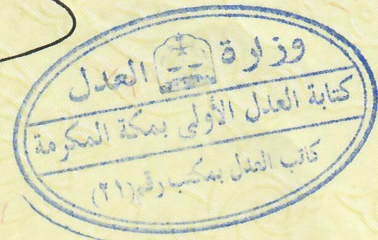 وزارة العدل
كتابة العدل الأولى بمكة المكرمة
كاتب العدل بمكتب رقم (٢١)